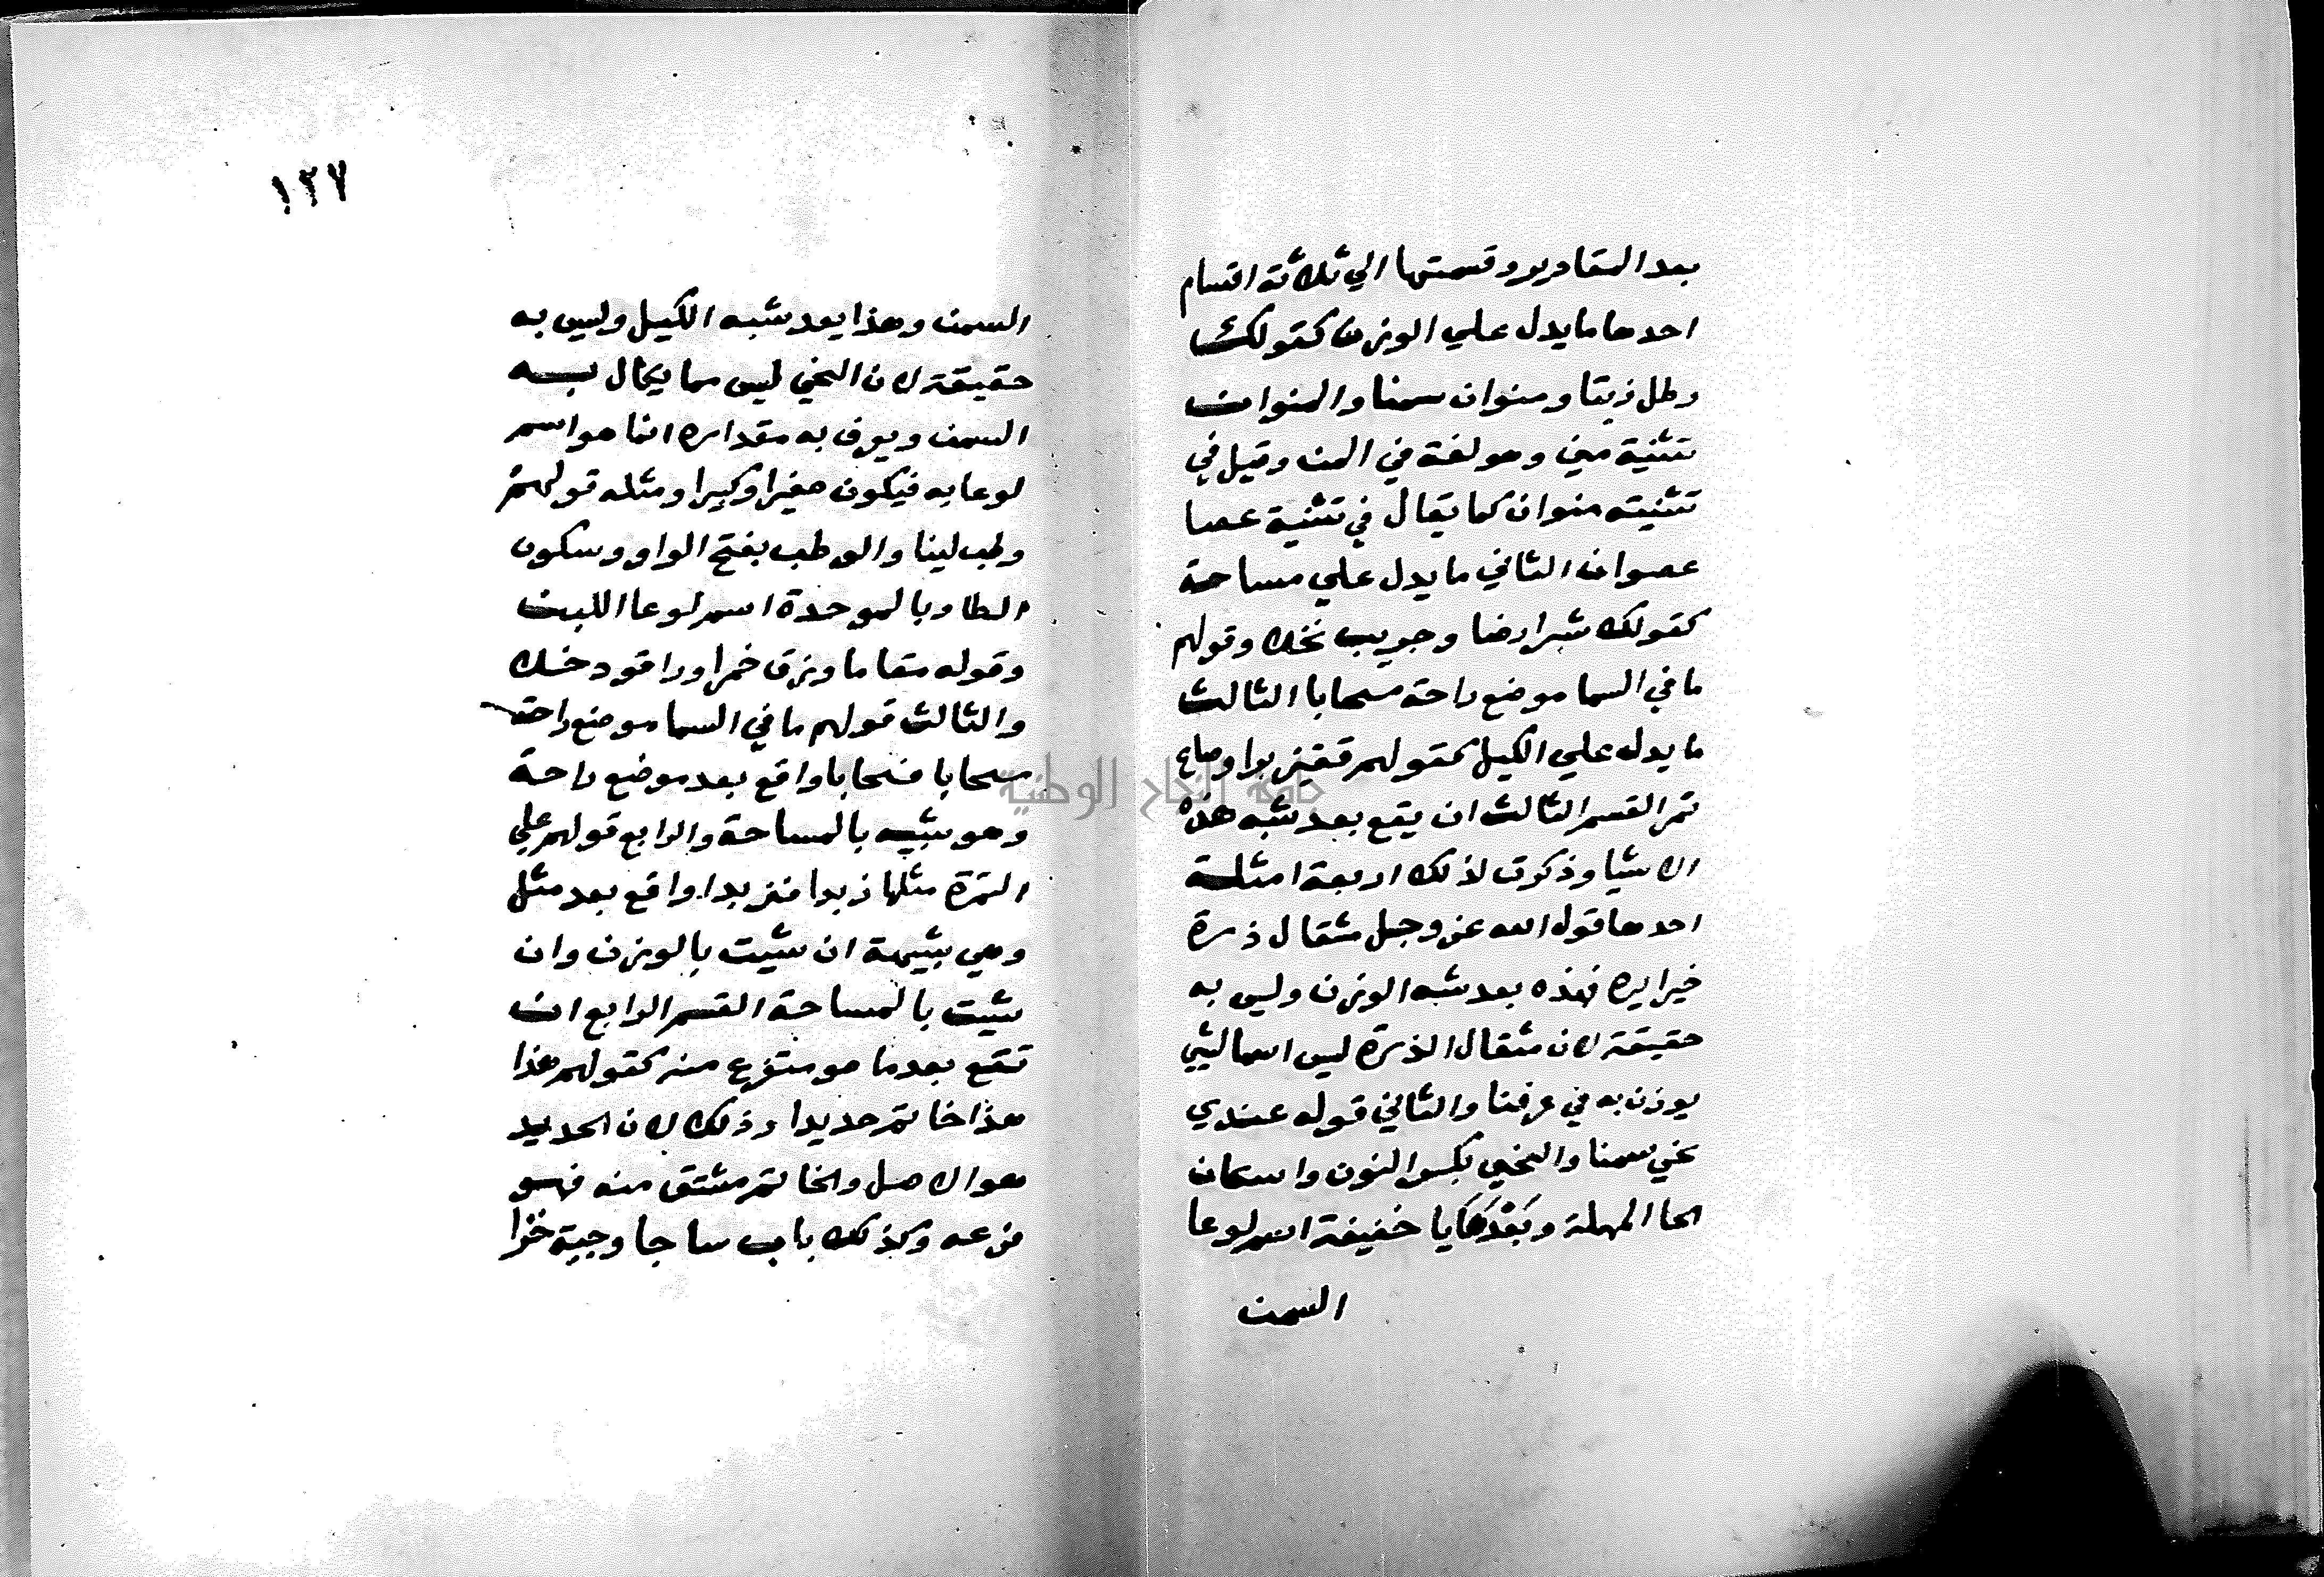 بعد المقادير وقسمتها الي ثلاثة اقسام
احدها ما يدل علي الوزن كقولك
رطل زيتا ومنوان سمنا والمنوان
تثنية مني وهو لغة في المن وقيل في
تثنيته منوان كما يقال في تثنية عصا
عصوان الثاني ما يدل علي مساحة
كقولك شبرا رضا وجريب نخلا وقولهم
ما في السما موضع راحة سحابا الثالث
ما يدله علي الكيل كقولهم قفيز برا وصاع
تمر القسم الثالث ان يقع بعد شبه هذه
الاشيا وذكرت لذلك اربعة امثلة
احدها قول الله عز وجل مثقال ذرة
خيرا يره فهذه بعد شبه الوزن وليس به
حقيقة لان مثقال الذرة ليس اسما لشي
يوزن به في عرفنا والثاني قوله عندي
نحي سمنا والنحي بكسر النون واسكان
الحا المهملة وبعدها يا خفيفة اسم لوعا
السمن
١٢٧
السمن وهذا يعد شبه الكيل وليس به
حقيقة لان النحي ليس مما يكال به
السمن ويعرف به مقداره انما هو اسم
لوعايه فيكون صغيرا وكبيرا ومثله قولهم
وطب لبنا والوطب بفتح الواو وسكون
الطا وبالموحدة اسم لوعا اللبن
وقوله سقا ما وزق خمرا وراقود خلا
والثالث قولهم ما في السما موضع راحة
سحابا فسحابا واقع بعد موضع راحة
وهو شبيه بالمساحة والرابع قولهم علي
التمرة مثلها زبدا فزبدا واقع بعد مثل
وهي شبيهة ان شيت بالوزن وان
شيت بالمساحة القسم الرابع ان
تقع بعد ما هو متفرع منه كقولهم هذا
هذا خاتم حديدا وذلك لان الحديد
هو الاصل والخاتم مشتق منه فهو
فرعه وكذلك باب ساجا وجبة خزا
جامعة النجاح الوطنية